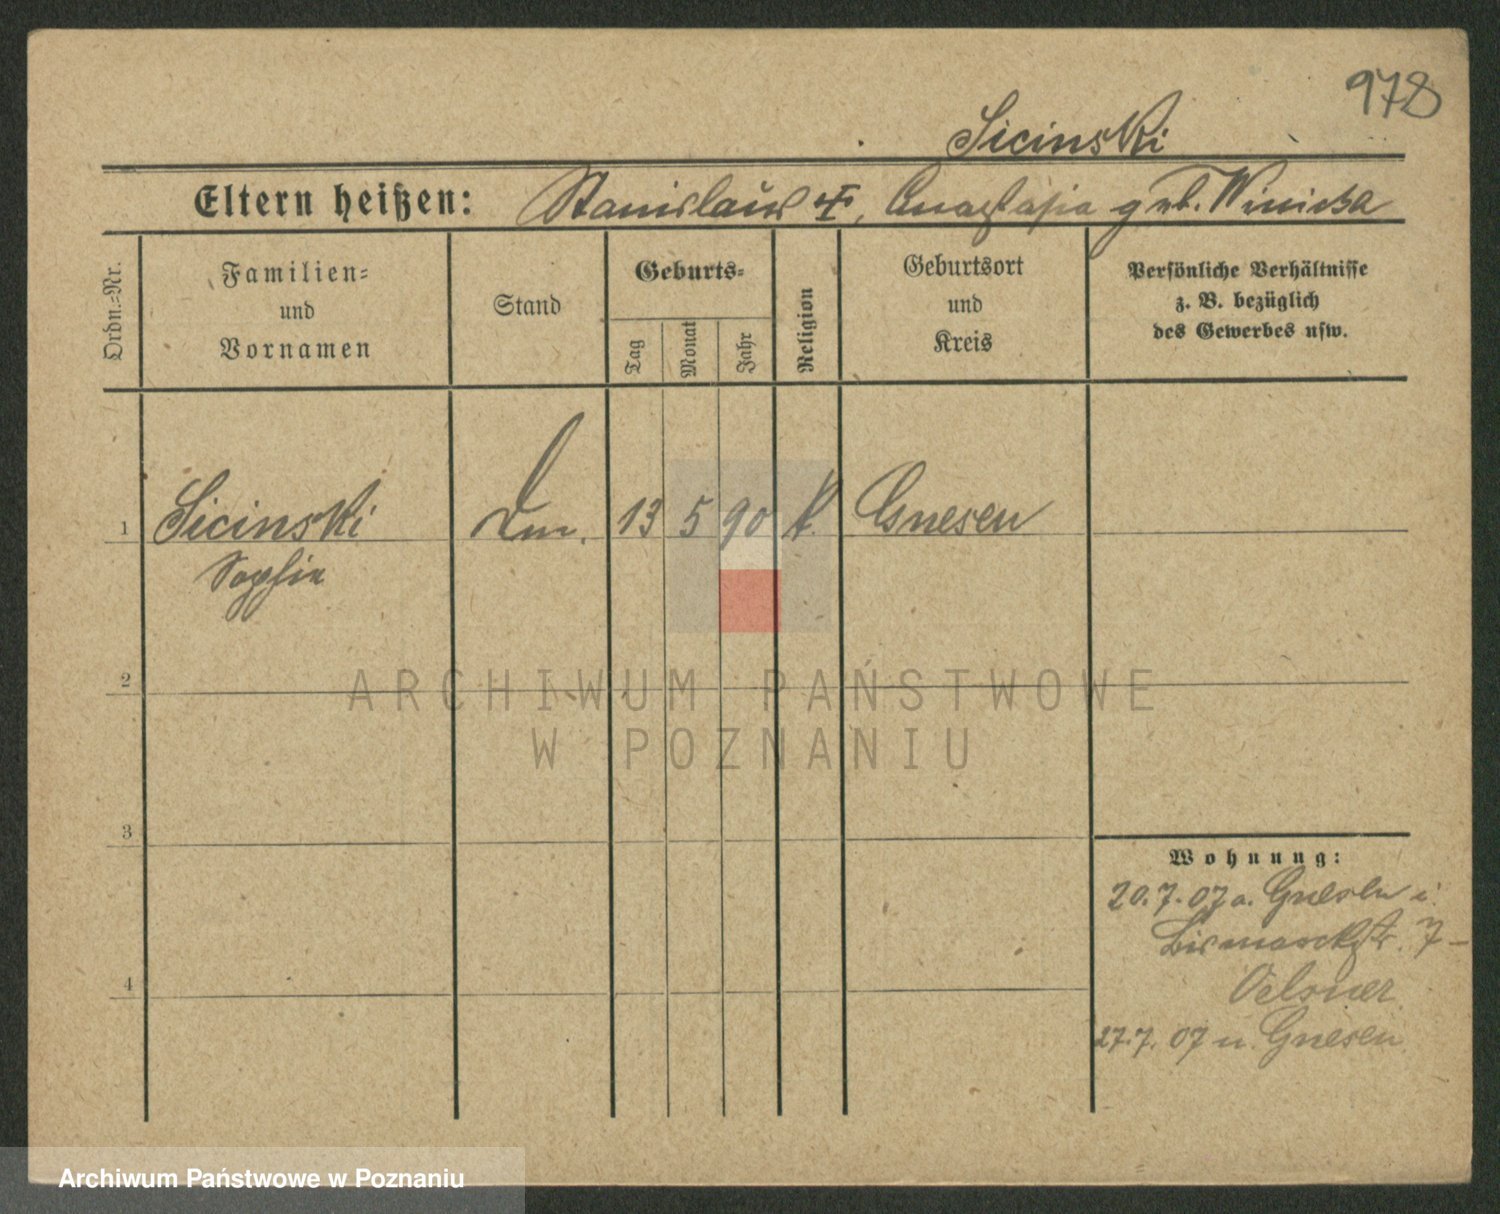 978
Sicinski
Eltern heißen: Stanislaus †, Anastasia geb. Winicka
Ordn.=Nr.
Familien=
und
Vornamen
Stand
Geburts=
Tag
Monat
Jahr
Religion
Geburtsort
und
Kreis
Persönliche Verhältnisse
z. B. bezüglich
des Gewerbes usw.
1 Sicinski 13 5 90 k. Gnesen
Sophie
2
3
4
Wohnung:
20.7.07 a. Gnesen i.
Bismarckstr. 7-
Oelsner
27.7.07 n. Gnesen
ARCHIWUM PAŃSTWOWE
W POZNANIU
Archiwum Państwowe w Poznaniu